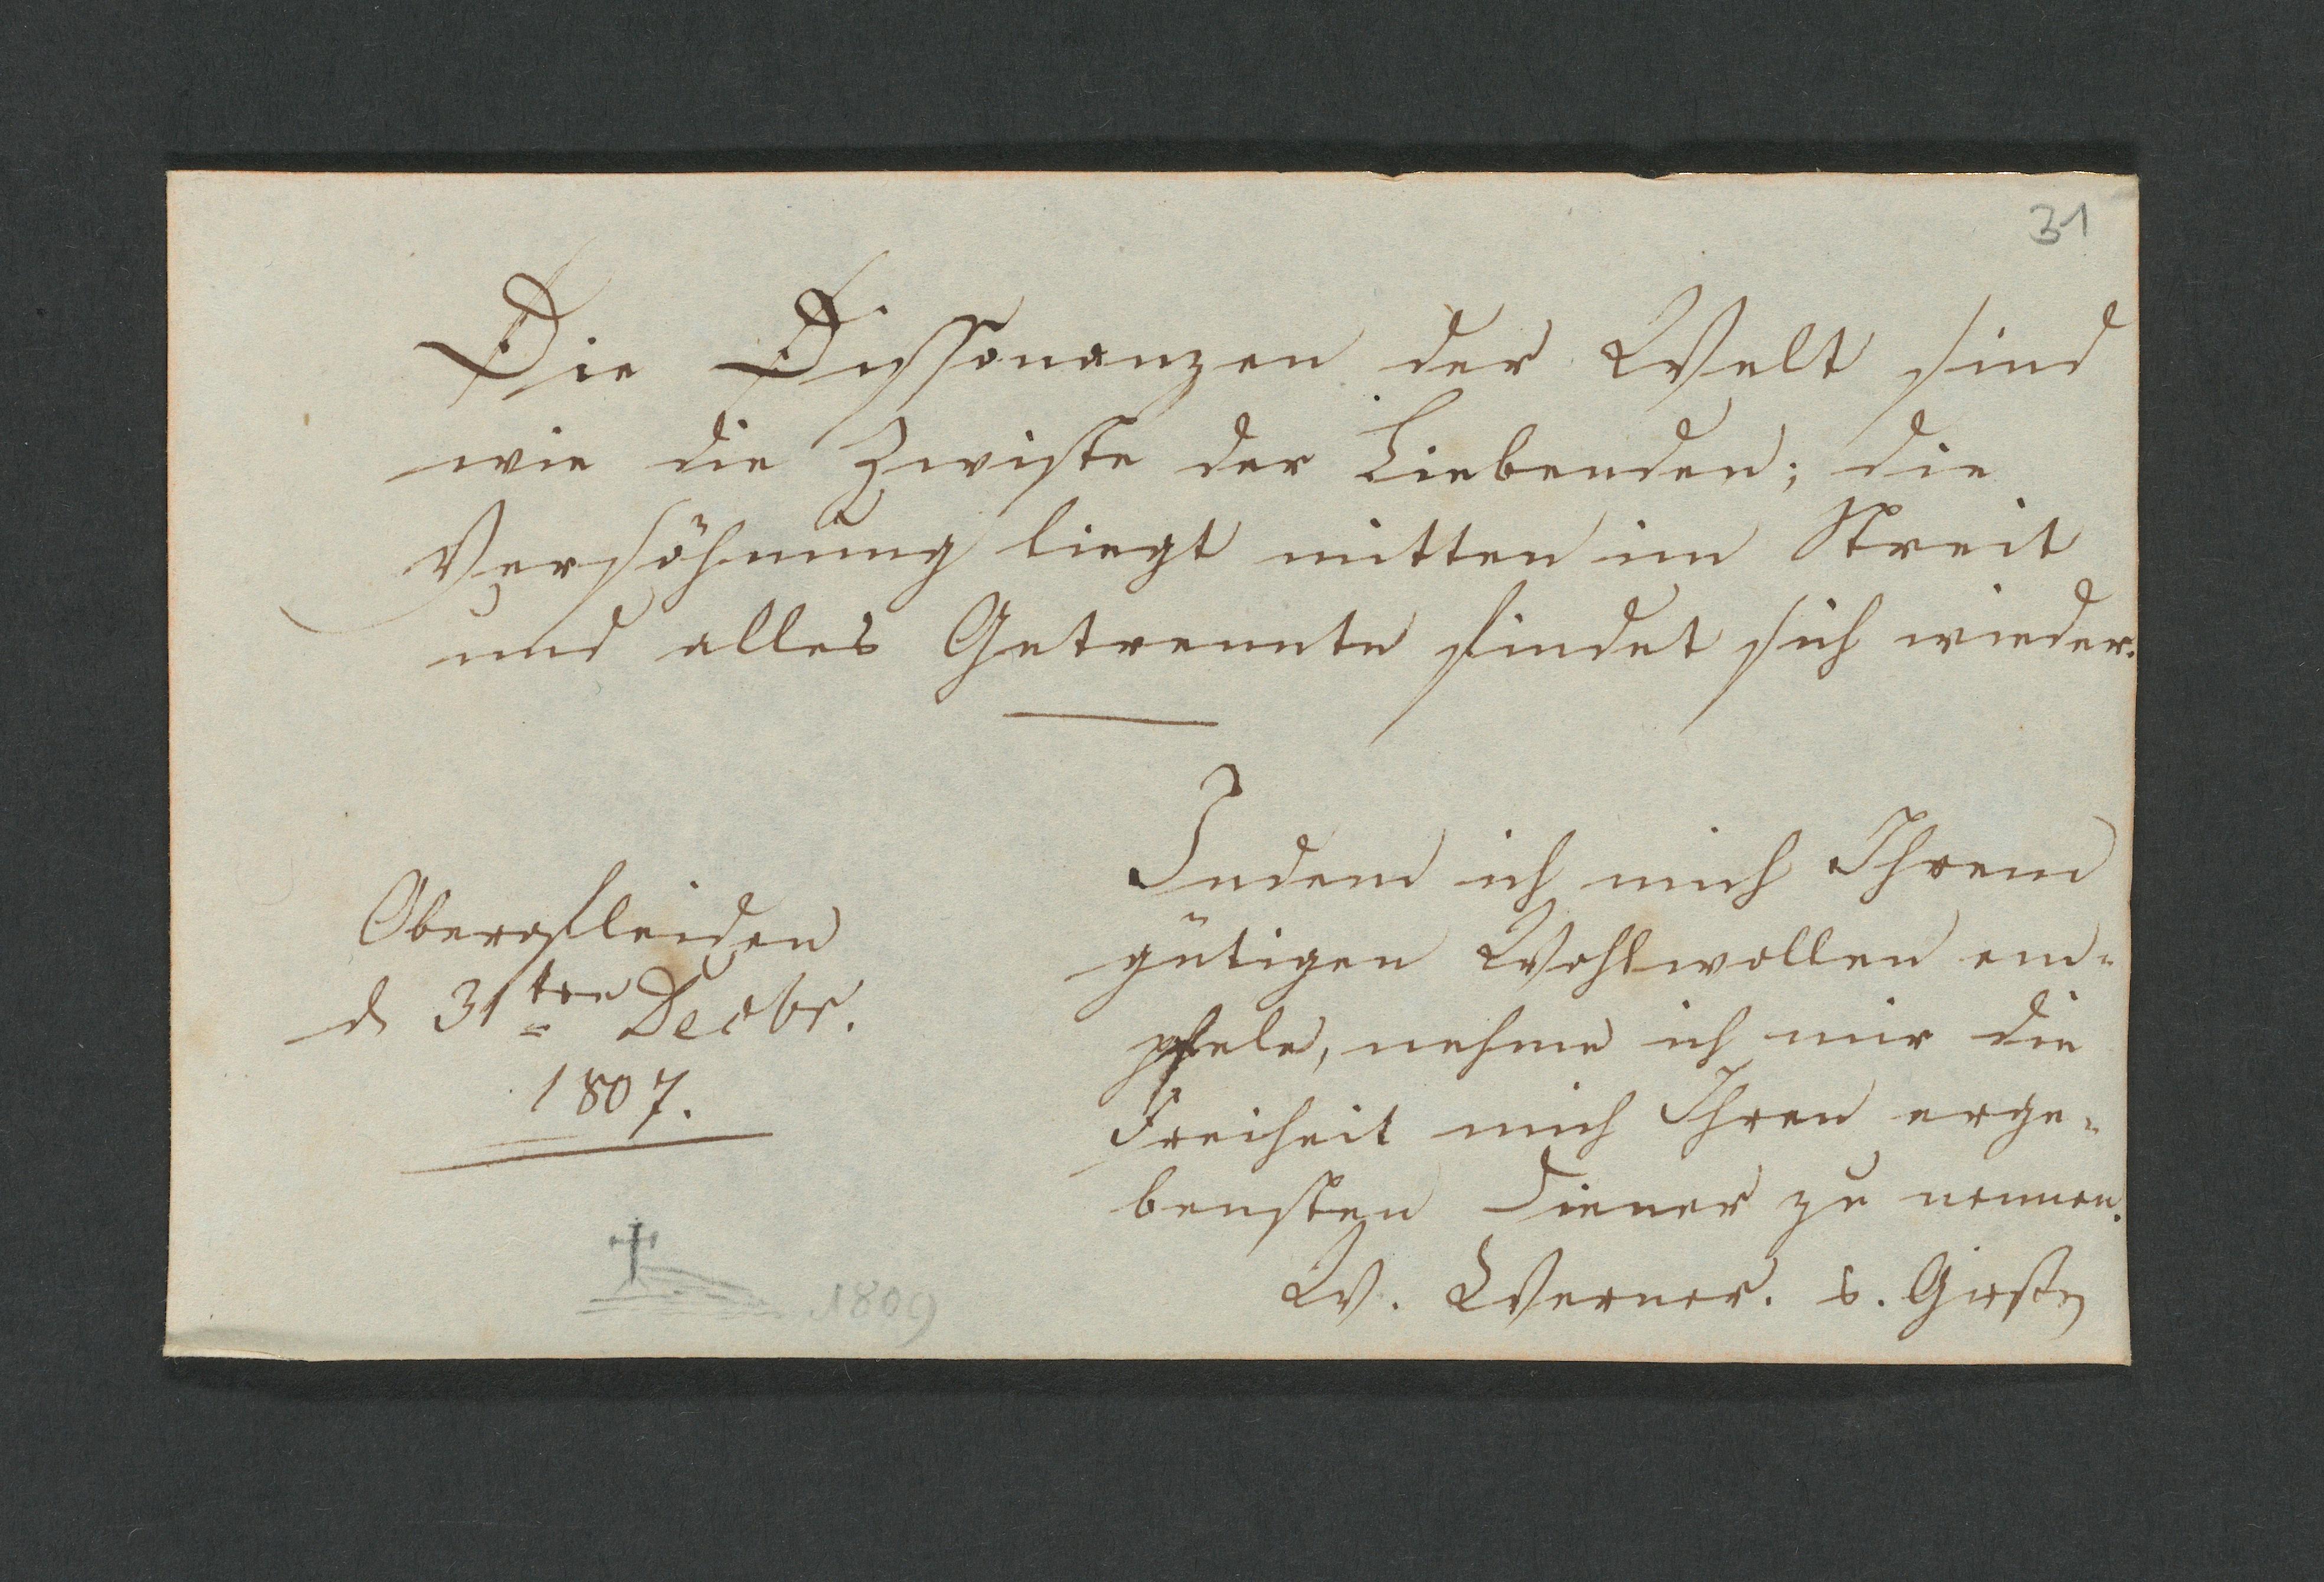 31
Die Dissonanzen der Welt sind
wie die Zwiste der Liebenden; die
Versöhnung liegt mitten im Streit
und alles Getrennte findet sich wieder.
Oberofleiden
d 31ten Decbr.
1807.
1809
Indem ich mich Ihrem
gütigen Wohlwollen em=
pfele, nehme ich mir die
Freiheit mich Ihren erge=
bensten Diener zu nennen.
W. Werner.